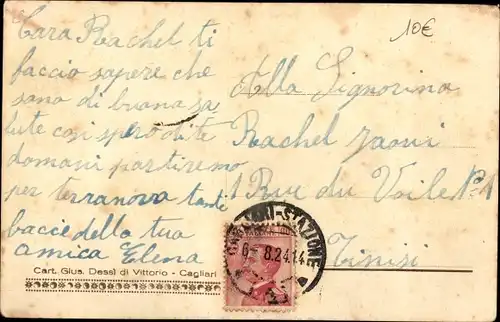 10€
Cara Rachel ti
faccio sapere che
sono di buona sa
lute cosi spero di te
domani partiremo
per terranova tanti
bacce della tua
amica Elena
Alla Signorina
Rachel Jaoui
1 Rue du Voile N°1
Tinisi
STAZIONE
6 - 8.24.14
Cart. Gius. Dessì di Vittorio - Cagliari